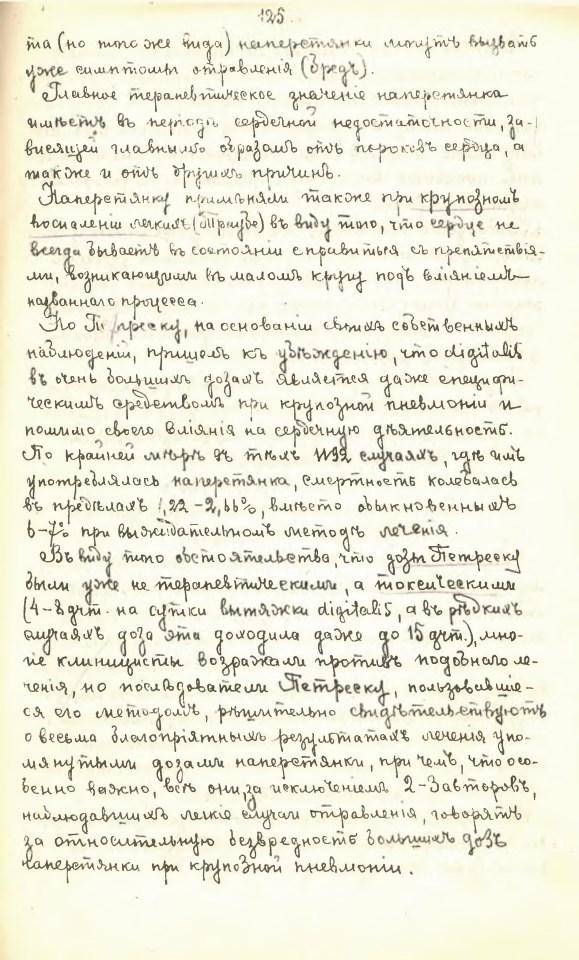 125
та (но того же вида) наперстянки могутъ вызвать
уже симптомы отравленія (бредъ).
Главное терапевтическое значеніе наперстянка
имѣетъ въ періодъ сердечной недостаточности, за-
висящей главнымъ образомъ отъ пороковъ сердца, а
также и отъ другихъ причинъ.
Наперстянку примѣняли также при крупозномъ
воспаленіи легкихъ (Траубе) въ виду того, что сердце не
всегда бываетъ въ состояніи справиться съ препятствія-
ми, возникающими въ маломъ кругу подъ вліяніемъ
названнаго процесса.
Но П реску, на основаніи своихъ собственныхъ
наблюденій, пришелъ къ убѣжденію, что digitalis
въ очень большихъ дозахъ является даже специфи-
ческимъ средствомъ при крупозной пневмоніи и
помимо своего вліянія на сердечную дѣятельность.
По крайней мѣрѣ въ тѣхъ 1192 случаяхъ, гдѣ имъ
употреблялась наперстянка, смертность колебалась
въ предѣлахъ 1,22 – 2,66%, вмѣсто обыкновенныхъ
6–7% при выжидательномъ методѣ леченія.
Въ виду того обстоятельства, что дозы Петреску
были уже не терапевтическими, а токсическими
(4–8 grm. на сутки вытяжки digitalis, а въ рѣдкихъ
случаяхъ доза эта доходила даже до 15 grm.), мно-
гіе клиницисты возражали противъ подобнаго ле-
ченія, но послѣдователи Петреску, пользовавшіе-
ся его методомъ, рѣшительно свидѣтельствуютъ
о весьма благопріятныхъ результатахъ леченія упо-
мянутыми дозами наперстянки, при чемъ, что осо-
бенно важно, всѣ они, за исключеніемъ 2-3 авторовъ,
наблюдавшихъ легкіе случаи отравленія, говорятъ
за относительную безвредность большихъ дозъ
наперстянки при крупозной пневмоніи.